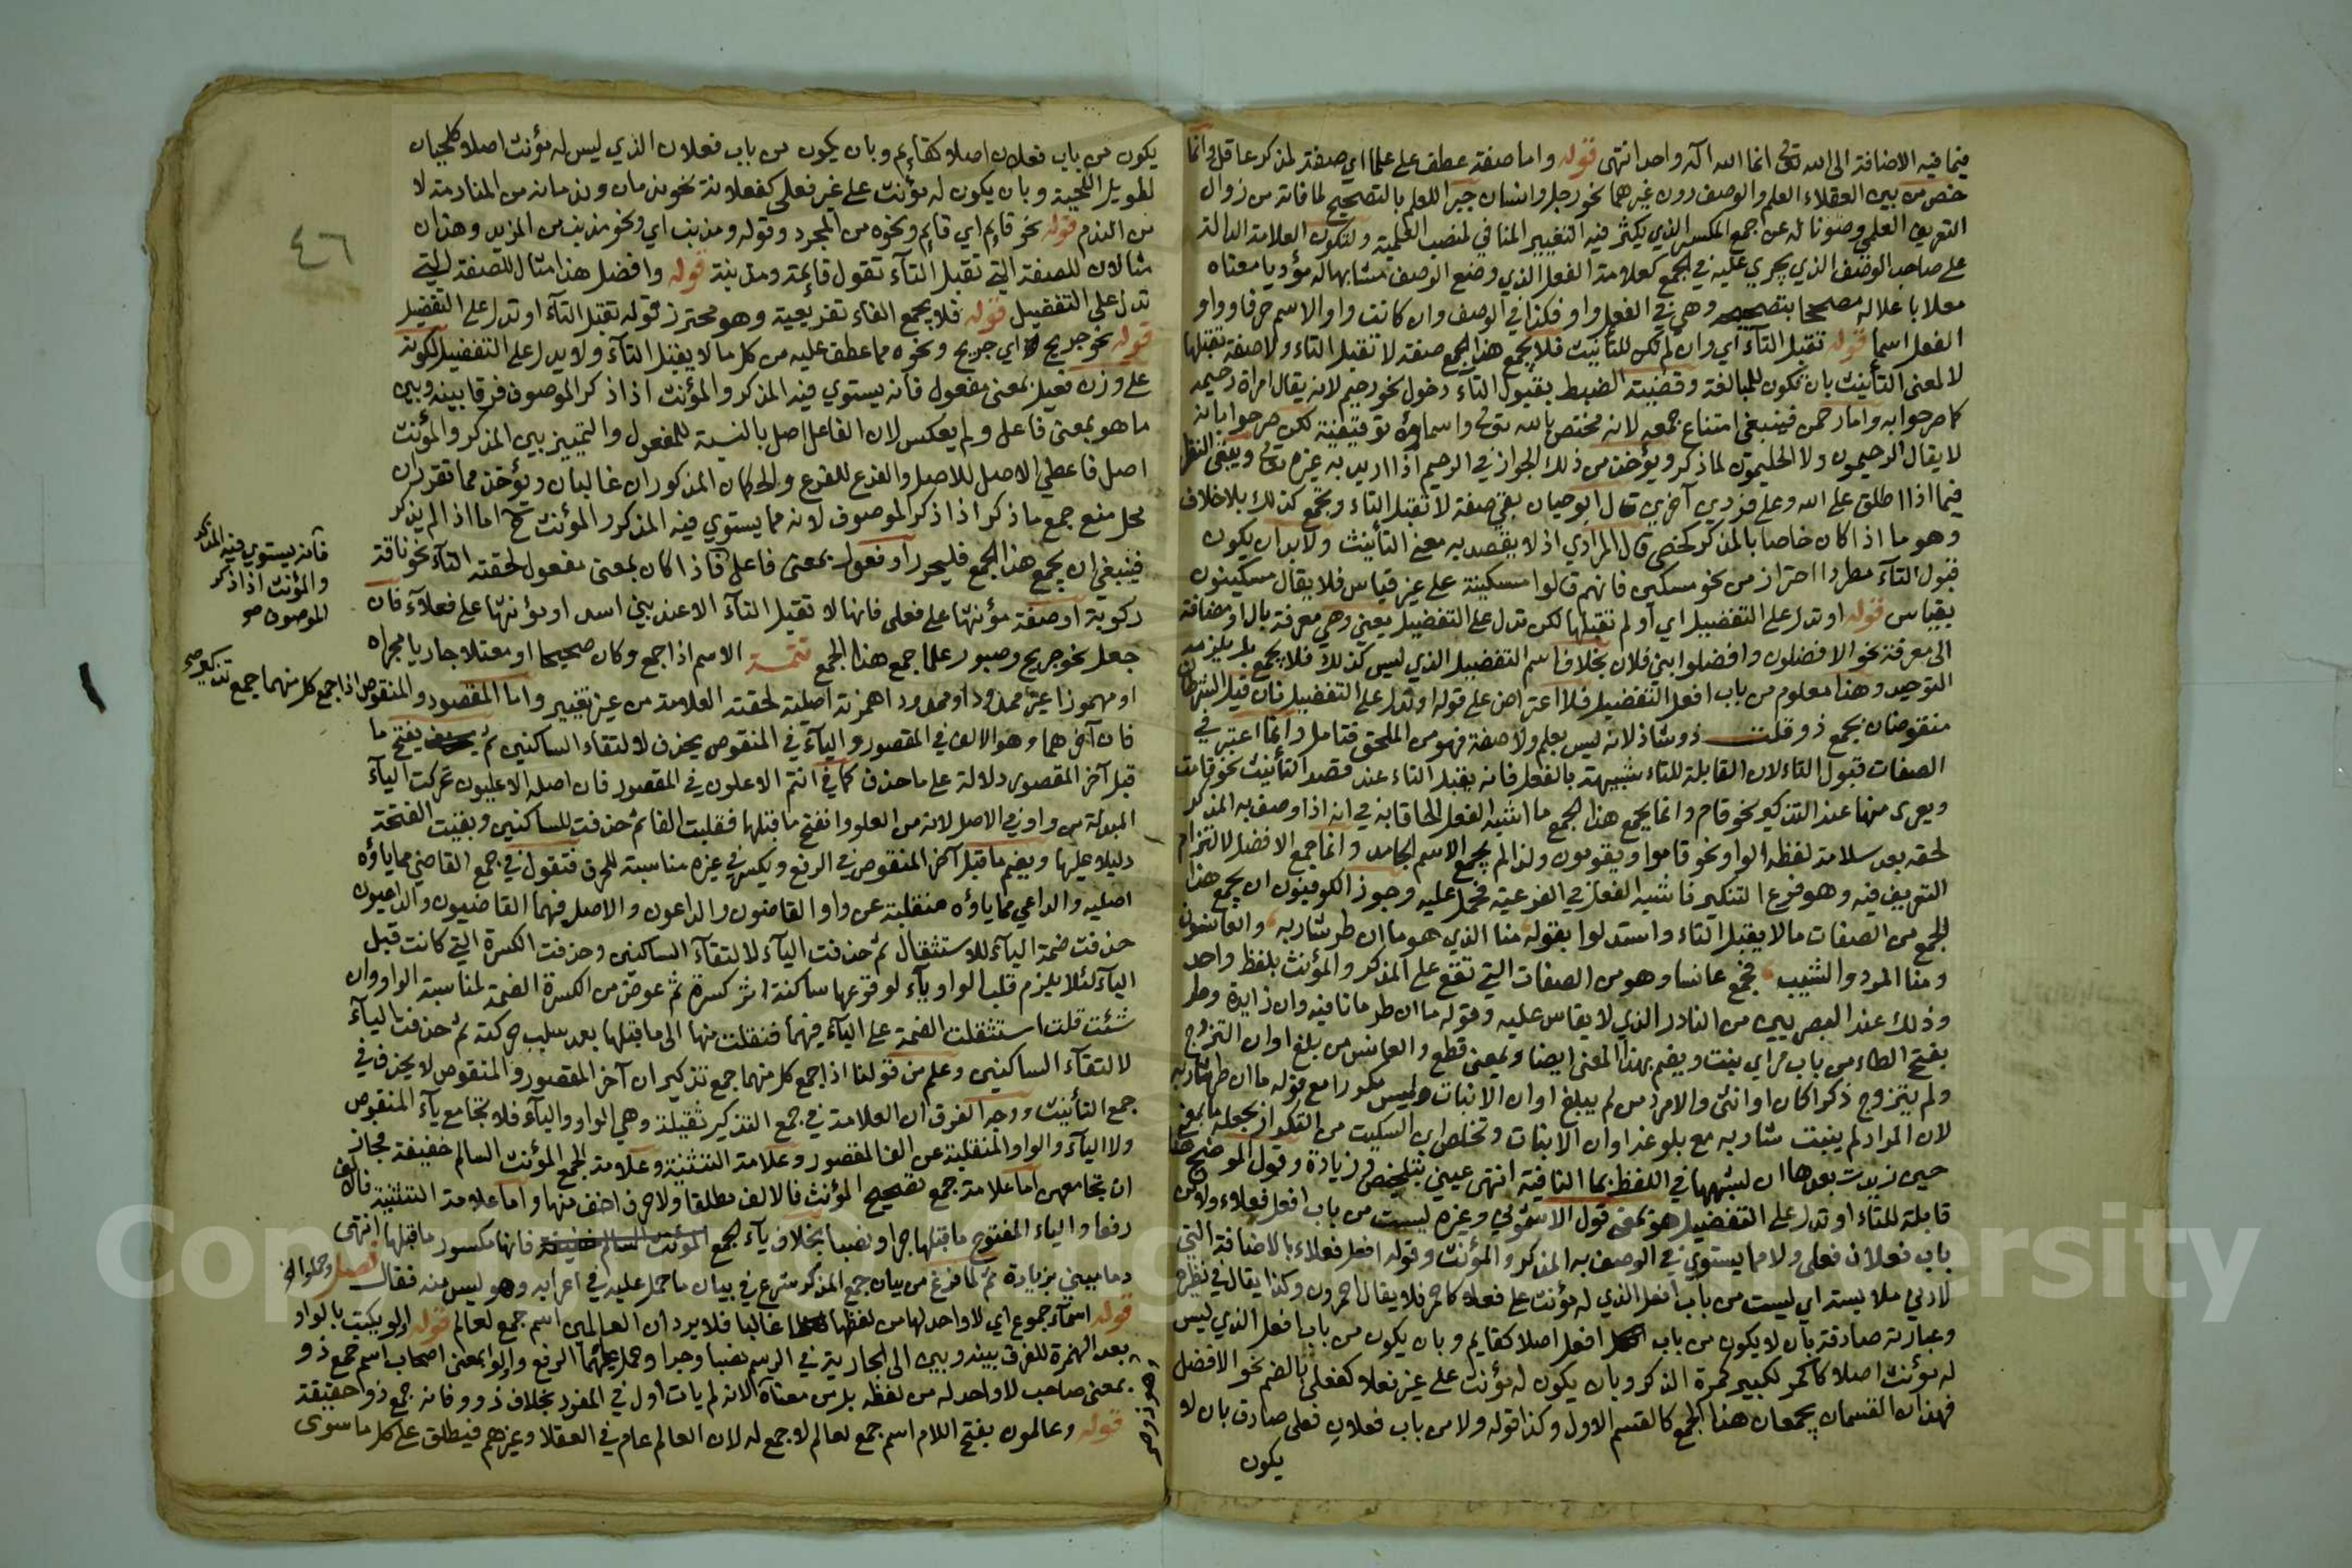 فيما فيه الاضافة الى الله تعالى انما الله اله واحد انتهى قوله واما صفة عطف على علما اي صفة لمذكر عاقل وانما
خص من بين العقلاء العلم والوصف دون غيرهما نحو رجل وانسان جبرا للعلم بالتصحيح لما فاته من زوال
التعريف العلمي وصونا له عن جمع المكسر الذي يكثر فيه التغيير المنافي لمنصب العلمية ولتكون العلامة الدالة
على صاحب الوصف الذي يجري عليه في الجمع كعلامة الفعل الذي وضع الوصف مشابها له مؤديا معناه
معلا باعلاله مصححا بتصحيحه وهي في الفعل واو فكذا في الوصف وان كانت واو الاسم حرفا وواو
الفعل اسما قوله تقبل التآء اي وان لم تكن للتأنيث فلا يجمع هذا الجمع صفة لا تقبل التاء ولا صفة تقبلها
لا لمعنى التأنيث بان تكون للمبالغة وقضية الضبط بقبول التاء دخول نحو رحيم لانه يقال امراة رحيمة
كما صرحوا به واما رحمن فينبغي امتناع جمعه لانه مختص بالله تعالى واسماؤه توقيفية لكن صرحوا بانه
لا يقال الرحيمون ولا الحليمون لما ذكر ويؤخذ من ذلك الجواز في الرحيم اذا اريد به غيره تعالى ويبقى النظر
فيما اذا اطلق على الله وعلى فرد آخر قال ابو حيان بقي صفة لا تقبل التاء وتجمع كذلك بلا خلاف
وهو ما اذا كان خاصا بالمذكر كخصي قال المرادي اذ لا يقصد به معنى التأنيث ولا بد ان يكون
قبول التآء مطردا احتراز من نحو مسكين فانهم قالوا مسكينة على غير قياس فلا يقال مسكينون
بقياس قوله او تدل على التفضيل اي او لم تقبلها لكن تدل على التفضيل يعني وهي معرفة بال او مضافة
الى معرفة نحو الافضلون وافضلوا بني فلان بخلاف اسم التفضيل الذي ليس كذلك فلا يجمع بل يلزمه
التوحيد وهذا معلوم من باب افعل التفضيل فلا اعتراض على قوله او تدل على التفضيل فان قيل الشرطان
منقوضان بجمع ذو قلت ذو شاذ لانه ليس بعلم ولا صفة فهو من الملحق فتامل وانما اعتبر في
الصفات قبول التاء لان القابلة للتاء شبيهة بالفعل فانه يقبل التاء عند قصد التأنيث نحو قامت
ويعرى منها عند التذكير نحو قام وانما يجمع هذا الجمع ما اشبه الفعل الحاقا به في انه اذا وصف به المذكر
لحقه بعد سلامة لفظه الواو نحو قاموا ويقومون ولذا لم يجمع الاسم الجامد وانما جمع الافضل لالتزام
التعريف فيه وهو فرع التنكير فاشبه الفعل في الفرعية فحمل عليه وجوز الكوفيون ان يجمع هذا
الجمع من الصفات ما لا يقبل التاء واستدلوا بقوله منا الذي هو ما ان طر شاربه والعانسون
ومنا المرد والشيب فجمع عانسا وهو من الصفات التي تقع على المذكر والمؤنث بلفظ واحد
وذلك عند البصريين من النادر الذي لا يقاس عليه وقوله ما ان طر ما نافيه وان زايدة وطر
بفتح الطاء من باب مر اي ينبت ويضم بهذا المعنى ايضا وبمعنى قطع والعانس من بلغ اوان التزوج
ولم يتزوج ذكرا كان او انثى والامرد من لم يبلغ اوان الانبات وليس مكررا مع قوله ما ان طر شاربه
لان المراد لم ينبت شاربه مع بلوغه اوان الانبات وتخلص ابن السكيت من التكرار بجعله ما بمعنى
حين زيدت بعدها ان لشبهها في اللفظ بما النافية انتهى عيني بتلخيص وزيادة وقول الموضح هنا
قابلة للتاء او تدل على التفضيل هو بمعنى قول الاشموني وغيره ليست من باب افعل فعلاء ولا من
باب فعلان فعلى ولا مما يستوي في الوصف به المذكر والمؤنث وقوله افعل فعلاء بالاضافة التي
لادنى ملابسة اي ليست من باب افعل الذي له مؤنث على فعلاء كاحمر فلا يقال احمرون وكذا يقال في نظيره
وعبارته صادقة بان لا يكون من باب افعل اصلا كقايم وبان يكون من باب افعل الذي ليس
له مؤنث اصلا كاكمر لكبير كمرة الذكر وبان يكون له مؤنث على غير فعلاء كفعلى بالضم نحو الافضل
فهذان القسمان يجمعان هذا الجمع كالقسم الاول وكذا قوله ولا من باب فعلان فعلى صادق بان لا
يكون
يكون من باب فعلان اصلا كقايم وبان يكون من باب فعلان الذي ليس له مؤنث اصلا كلحيان
لطويل اللحية وبان يكون له مؤنث على غير فعلى كفعلانة نحو ندمان وندمانة من المنادمة لا
من الندم قوله نحو قايم اي قايم ونحوه من المجرد وقوله ومذنب اي ونحو مذنب من المزيد وهذان
مثالان للصفة التي تقبل التآء تقول قائمة ومذنبة قوله وافضل هذا مثال للصفة التي
تدل على التفضيل قوله فلا يجمع الفاء تفريعية وهو محترز قوله تقبل التآء او تدل على التفضيل
قوله نحو جريح اي جريح ونحوه مما عطف عليه من كل ما لا يقبل التآء ولا يدل على التفضيل لكونه
على وزن فعيل بمعنى مفعول فانه يستوي فيه المذكر والمؤنث اذا ذكر الموصوف فرقا بينه وبين
ما هو بمعنى فاعل ولم يعكس لان الفاعل اصل بالنسبة للمفعول والتمييز بين المذكر والمؤنث
اصل فاعطي الاصل للاصل والفرع للفرع والحكمان المذكوران غالبان ويؤخذ مما تقرر ان
محل منع جمع ما ذكر اذا ذكر الموصوف لانه مما يستوي فيه المذكر والمؤنث ح اما اذا لم يذكر
فينبغي ان يجمع هذا الجمع فليحرر او فعول بمعنى فاعل فاذا كان بمعنى مفعول لحقته التآء نحو ناقة
ركوبة او صفة مؤنثها على فعلى فانها لا تقبل التآء الا عند بني اسد او مؤنثها على فعلآء فان
جعل نحو جريح وصبور علما جمع هذا الجمع تتمة الاسم اذا جمع وكان صحيحا او معتلا جاريا مجراه
او مهموزا غير ممدود او ممدودا همزته اصلية لحقته العلامة من غير تغيير واما المقصور والمنقوص اذا جمع كل منهما جمع تذكير
فان آخرهما وهو الالف في المقصور واليآء في المنقوص يحذف لالتقاء الساكنين ثم يفتح ما
قبل آخر المقصور دلالة على ما حذف كما في انتم الاعلون في المقصور فان اصله الاعليون تحركت اليآء
المبدلة من واو في الاصل لانه من العلو وانفتح ما قبلها فقلبت الفا ثم حذفت للساكنين وبقيت الفتحة
دليلا عليها ويضم ما قبل آخر المنقوص في الرفع ويكسر في غيره مناسبة للحرف فتقول في جمع القاضي مما ياؤه
اصليه والداعي مما ياؤه منقلبة عن واو القاضون والداعون والاصل فيهما القاضيون والداعيون
حذفت ضمة اليآء للاستثقال ثم حذفت اليآء لالتقآء الساكنين وحذفت الكسرة التي كانت قبل
اليآء لئلا يلزم قلب الواو يآء لوقوعها ساكنة اثر كسرة ثم عوض من الكسرة الضمة لمناسبة الواو وان
شئت قلت استثقلت الضمة على اليآء فيهما فنقلت منها الى ما قبلها بعد سلب حركته ثم حذفت اليآء
لالتقآء الساكنين وعلم من قولنا اذا جمع كل منهما جمع تذكير ان آخر المقصور والمنقوص لا يحذف في
جمع التأنيث ووجه الفرق ان العلامة في جمع التذكير ثقيلة وهي الواو واليآء فلا تجامع يآء المنقوص
ولا اليآء والواو المنقلبة عن الف المقصور وعلامة التثنية وعلامة الجمع المؤنث السالم خفيفة فجاز
ان تجامعهن اما علامة جمع تصحيح المؤنث فالالف مطلقا ولا حرف اخف منها واما علامة التثنية فالالف
رفعا والياء المفتوح ما قبلها جرا ونصبا بخلاف يآء الجمع فانها مكسور ما قبلها انتهى
دماميني بزيادة ثم لما فرغ من بيان جمع المذكر شرع في بيان ما حمل عليه في اعرابه وهو ليس منه فقال فصل وحملوا الخ
قوله اسمآء جموع اي لا واحد لها من لفظها غالبا فلا يرد ان العالمين اسم جمع لعالم قوله اولو يكتب بالواو
بعد الهمزة للفرق بينه وبين الى الجارية في الرسم نصبا وجرا وحمل عليهما الرفع واولوا بمعنى اصحاب اسم جمع ذو
بمعنى صاحب لا واحد له من لفظه بل من معناه لانه لم يات اول في المفرد بخلاف ذوو فانه جمع ذو حقيقة
قوله وعالمون بفتح اللام اسم جمع لعالم لا جمع له لان العالم عام في العقلا وغيرهم فيطلق على كل ما سوى
٤٦
فانه يستوي فيه المذكر
والمؤنث اذا ذكر
الموصوف صح
Copyright © King Saud University